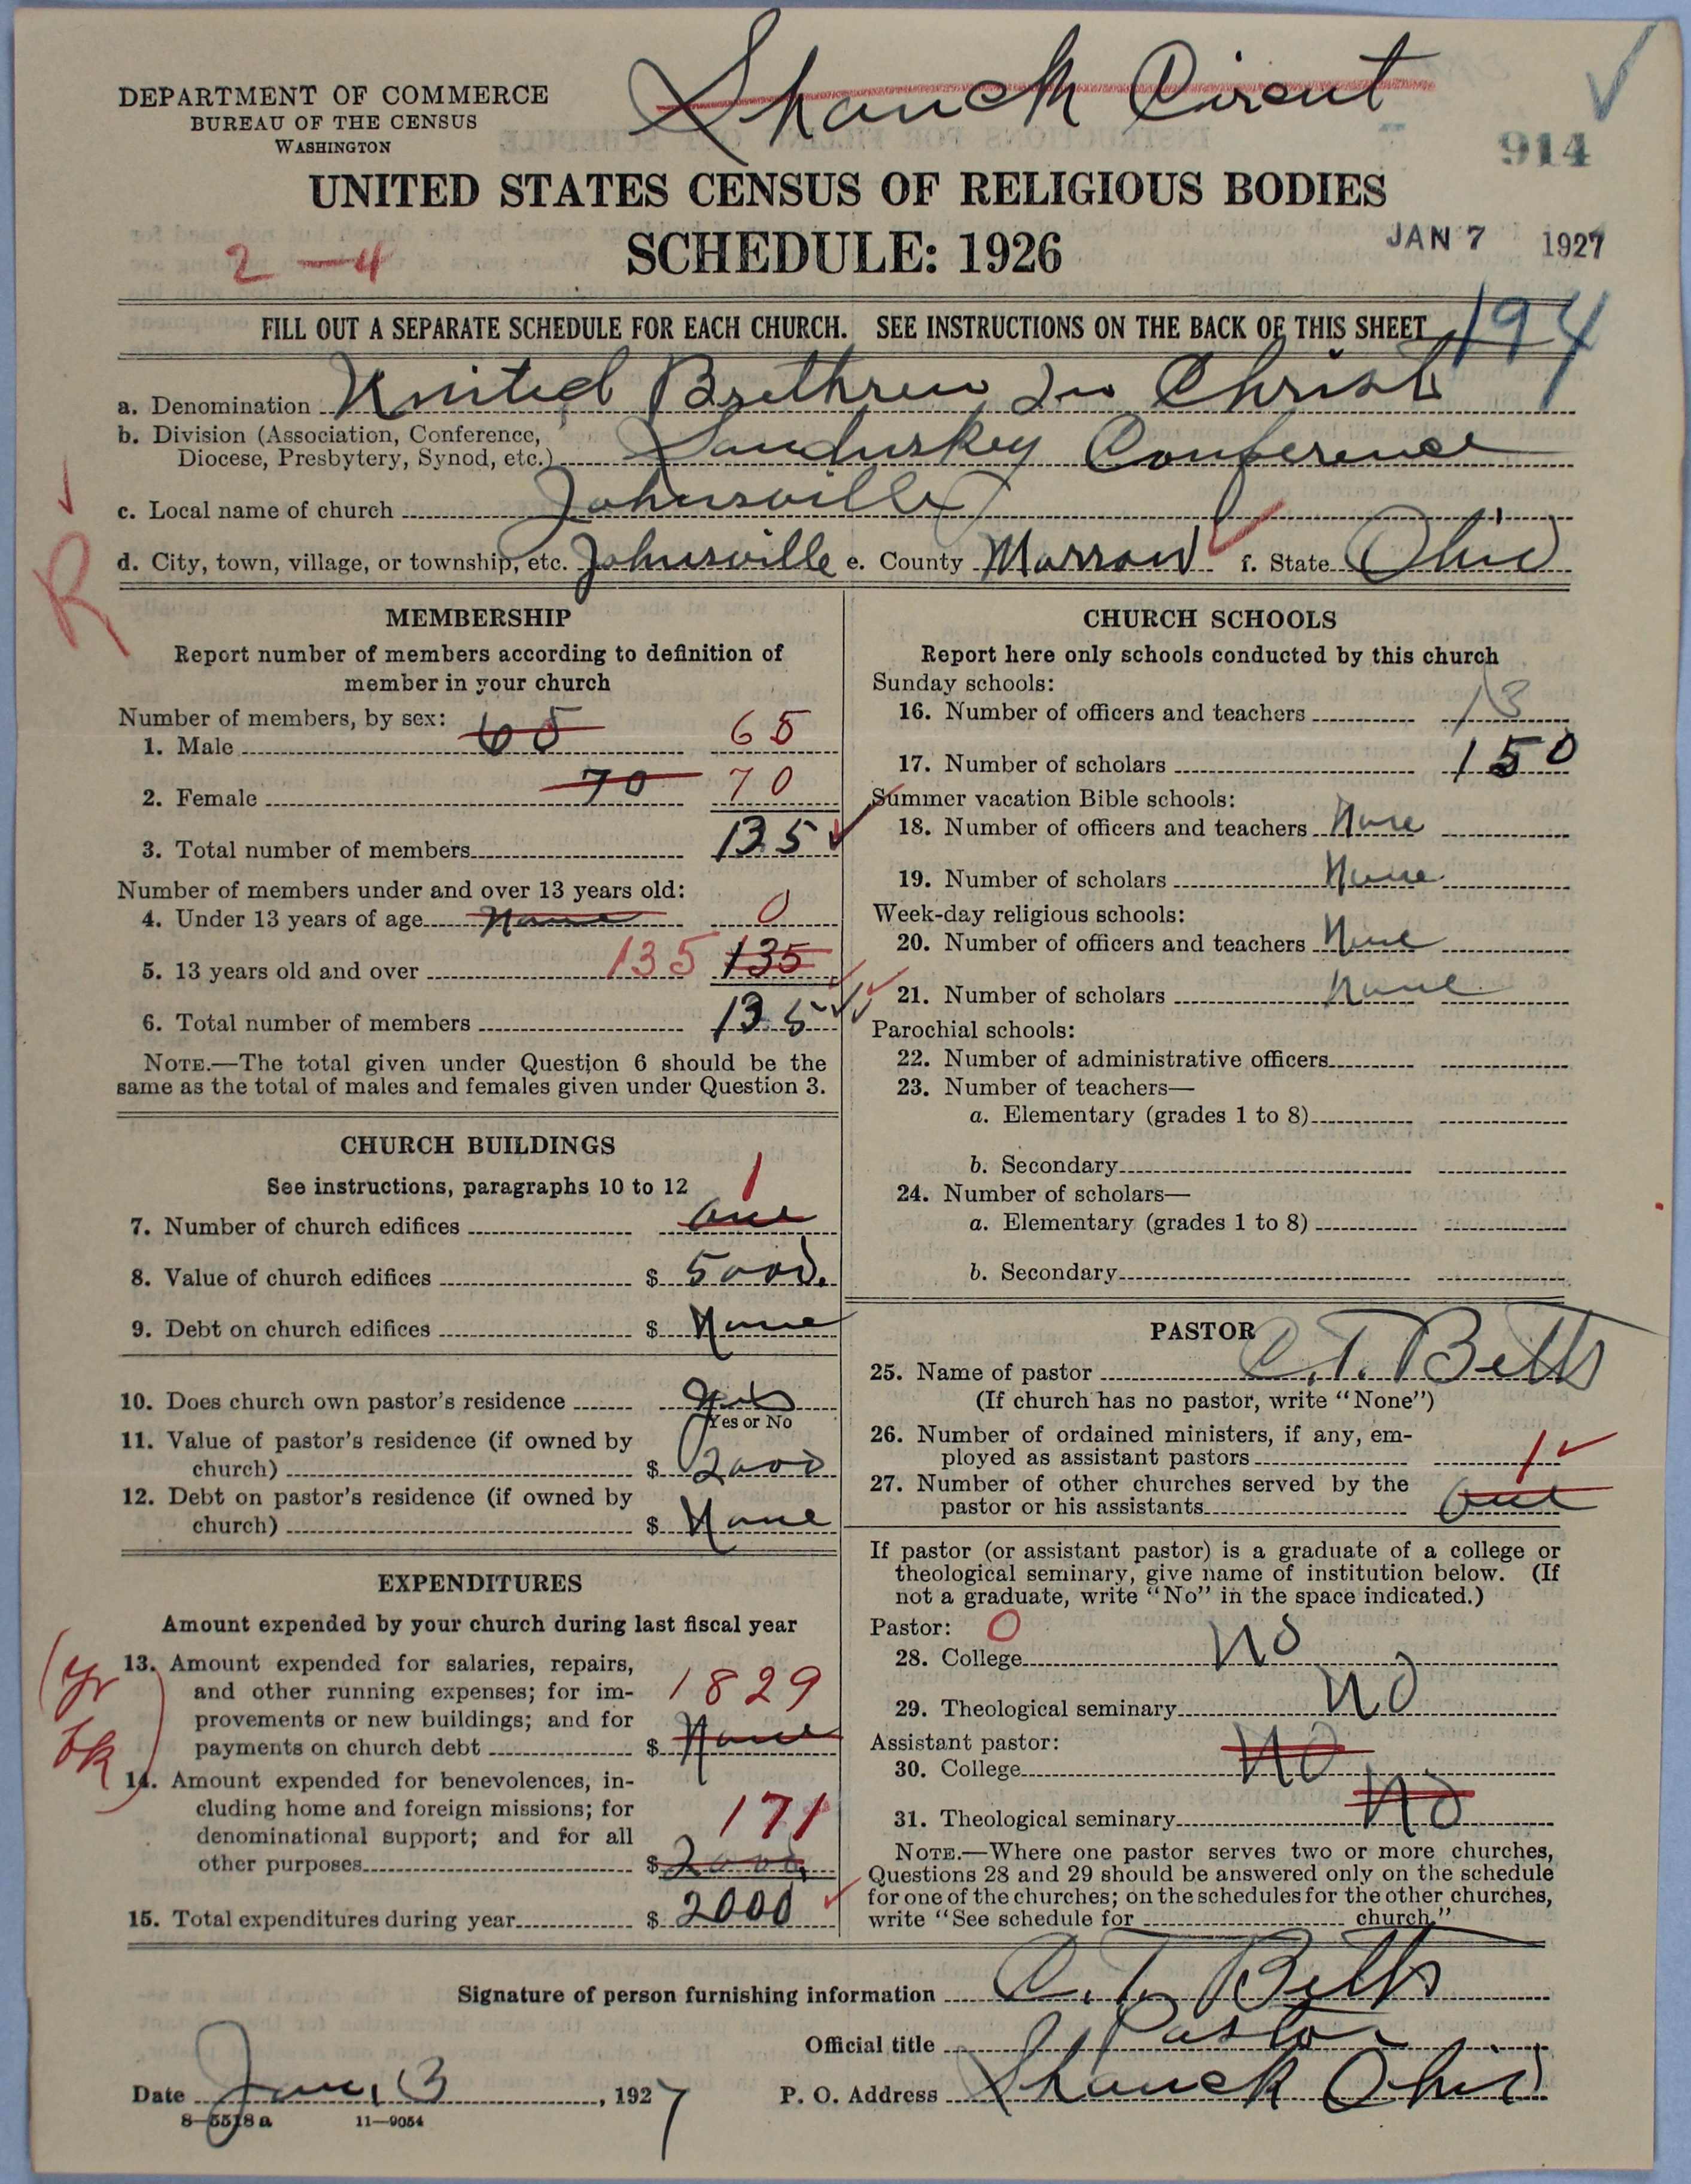 Shauck Circut
DEPARTMENT OF COMMERCE
BUREAU OF THE CENSUS
WASHINGTON
914
UNITED STATES CENSUS OF RELIGIOUS BODIES
SCHEDULE: 1926
JAN 7 1927
2—4
FILL OUT A SEPARATE SCHEDULE FOR EACH CHURCH. SEE INSTRUCTIONS ON THE BACK OF THIS SHEET
194
a. Denomination United Brethren In Christ
b. Division (Association, Conference,
Diocese, Presbytery, Synod, etc.) Sandusky Conference
c. Local name of church Johnsville
d. City, town, village, or township, etc. Johnsville e. County Morrow f. State Ohio
R
MEMBERSHIP
Report number of members according to definition of
member in your church
Number of members, by sex:
1. Male 65 65
2. Female 70 70
3. Total number of members 135
Number of members under and over 13 years old:
4. Under 13 years of age None 0
5. 13 years old and over 135 135
6. Total number of members 135
NOTE.—The total given under Question 6 should be the
same as the total of males and females given under Question 3.
CHURCH BUILDINGS
See instructions, paragraphs 10 to 12
1
7. Number of church edifices one
8. Value of church edifices $ 5000.
9. Debt on church edifices $ None
10. Does church own pastor's residence yes
Yes or No
11. Value of pastor's residence (if owned by
church) $ 2000
12. Debt on pastor's residence (if owned by
church) $ None
EXPENDITURES
Amount expended by your church during last fiscal year
(yr bk)
13. Amount expended for salaries, repairs,
and other running expenses; for im-
provements or new buildings; and for
1829
payments on church debt $ None
14. Amount expended for benevolences, in-
cluding home and foreign missions; for
denominational support; and for all
171
other purposes $ 2000
15. Total expenditures during year $ 2000
CHURCH SCHOOLS
Report here only schools conducted by this church
Sunday schools:
16. Number of officers and teachers 13
17. Number of scholars 150
Summer vacation Bible schools:
18. Number of officers and teachers None
19. Number of scholars None
Week-day religious schools:
20. Number of officers and teachers None
21. Number of scholars None
Parochial schools:
22. Number of administrative officers
23. Number of teachers—
a. Elementary (grades 1 to 8)
b. Secondary
24. Number of scholars—
a. Elementary (grades 1 to 8)
b. Secondary
PASTOR
25. Name of pastor C. T. Betts
(If church has no pastor, write "None")
26. Number of ordained ministers, if any, em-
ployed as assistant pastors 1
27. Number of other churches served by the
pastor or his assistants one
If pastor (or assistant pastor) is a graduate of a college or
theological seminary, give name of institution below. (If
not a graduate, write "No" in the space indicated.)
Pastor: 0
28. College No
29. Theological seminary No
Assistant pastor:
30. College No
31. Theological seminary No
NOTE.—Where one pastor serves two or more churches,
Questions 28 and 29 should be answered only on the schedule
for one of the churches; on the schedules for the other churches,
write "See schedule for church."
Signature of person furnishing information C. T. Betts
Official title Pastor
Date Jan, 3, 1927 P. O. Address Shauck Ohio
8—5518 a 11—9054